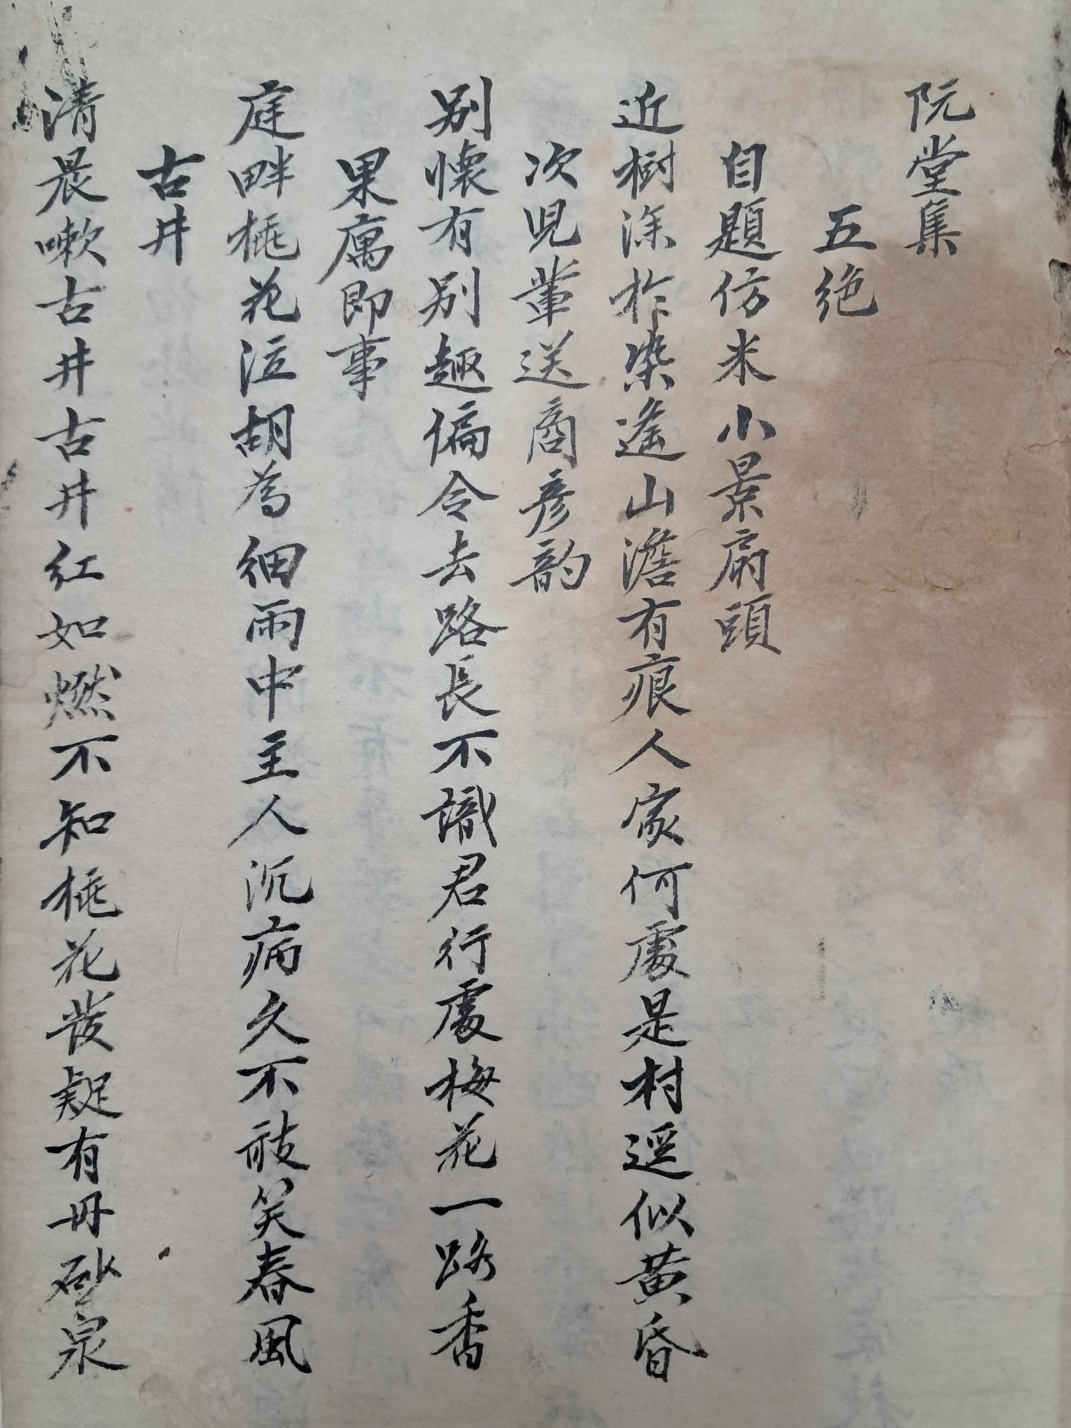 阮堂集
五絶
自題仿米小景扇頭
近樹深於染遙山澹有痕人家何處是村逕似黃昏
次児輩送商彦韵
別懷有別趣偏令去路長不識君行處梅花一路香
果寓即事
庭畔桃花泣胡為細雨中主人沉病久不敢笑春風
古井
清晨嗽古井古井紅如燃不知桃花發疑有丹砂泉